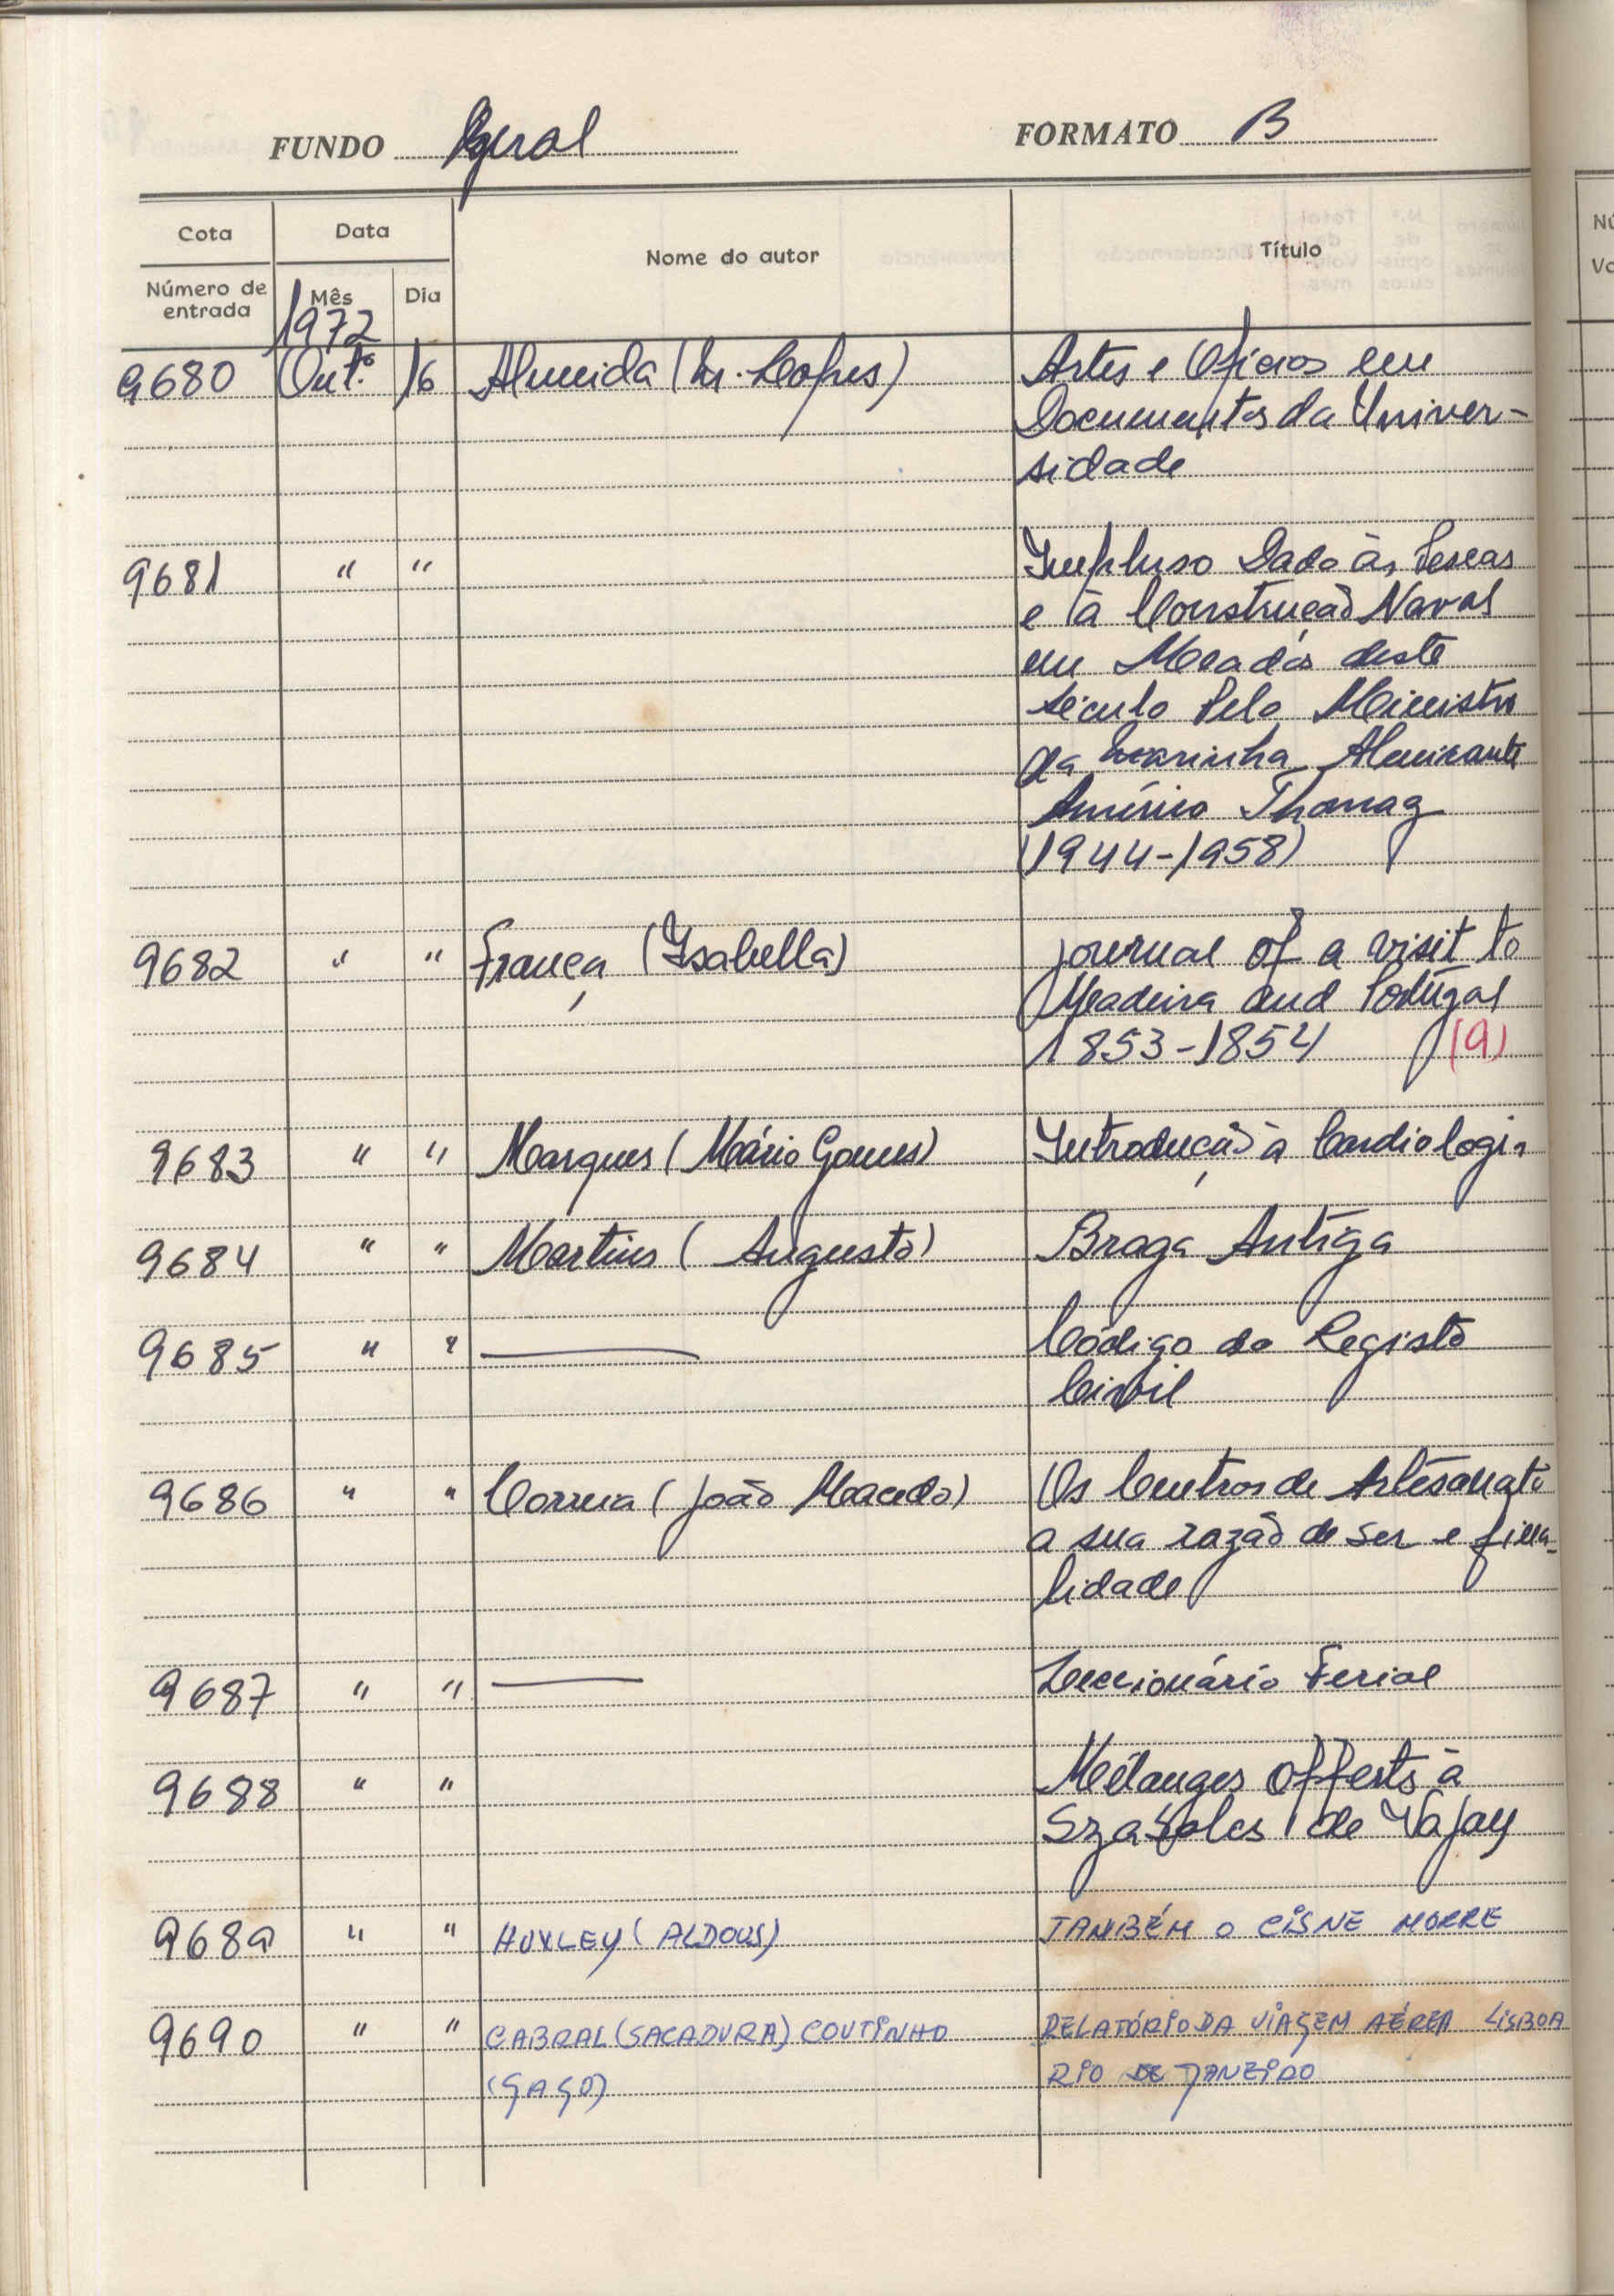 FUNDO Geral FORMATO B
Cota Data Nome do autor Título
Número de entrada Mês Dia
1972
9680 Out.º 16 Almeida (M. Lopes) Artes e Ofícios em
Documentos da Univer-
sidade
9681 " " Impluso Dado às Pescas
e à Construção Naval
em Meados deste
século Pelo Ministro
da Marinha Almirante
Américo Thomaz
(1944-1958)
9682 " " França (Isabella) Journal of a visit to
Madeira and Portugal
1853-1854 (9)
9683 " " Marques (Mário Gomes) Introdução à Cardiologia
9684 " " Martins (Augusto) Braga Antiga
9685 " " — Código do Registo
Civil
9686 " " Correia (João Macedo) Os Centros de Artesanato
a sua razão de ser e fina-
lidade
9687 " " — Leccionário Ferial
9688 " " Mélanges offerts à
Szabolcs de Vajay
9689 " " HUXLEY (ALDOUS) TAMBÉM O CISNE MORRE
9690 " " CABRAL (SACADURA) COUTINHO RELATÓRIO DA VIAGEM AÉREA LISBOA
(GAGO) RIO DE JANEIRO